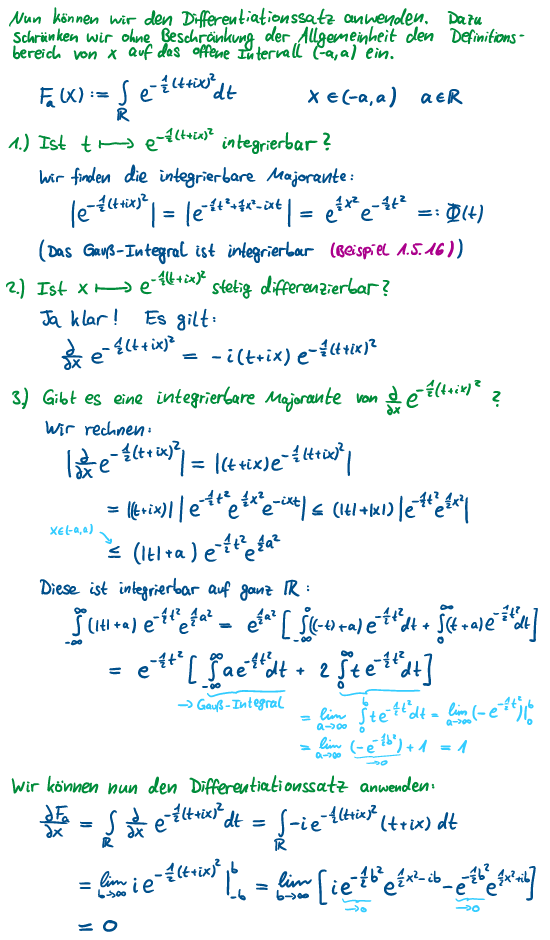 Nun können wir den Differentiationssatz anwenden. Dazu
schränken wir ohne Beschränkung der Allgemeinheit den Definitions-
bereich von x auf das offene Intervall (-a,a) ein.
F_a(x) := ∫_ℝ e^{-½(t+ix)²} dt x ∈ (-a,a) a ∈ ℝ
1.) Ist t ⟼ e^{-½(t+ix)²} integrierbar?
Wir finden die integrierbare Majorante:
|e^{-½(t+ix)²}| = |e^{-½t²+½x²-ixt}| = e^{½x²} e^{-½t²} =: Φ(t)
(Das Gauß-Integral ist integrierbar (Beispiel 1.5.16))
2.) Ist x ⟼ e^{-½(t+ix)²} stetig differenzierbar?
Ja klar! Es gilt:
∂/∂x e^{-½(t+ix)²} = -i(t+ix) e^{-½(t+ix)²}
3.) Gibt es eine integrierbare Majorante von ∂/∂x e^{-½(t+ix)²} ?
Wir rechnen:
|∂/∂x e^{-½(t+ix)²}| = |(t+ix) e^{-½(t+ix)²}|
= |(t+ix)| |e^{-½t²} e^{½x²} e^{-ixt}| ≤ (|t|+|x|) |e^{-½t²} e^{½x²}|
x∈(-a,a)
≤ (|t|+a) e^{-½t²} e^{½a²}
Diese ist integrierbar auf ganz ℝ:
∫_{-∞}^{∞} (|t|+a) e^{-½t²} e^{½a²} = e^{½a²} [ ∫_{-∞}^{0} ((-t)+a) e^{-½t²} dt + ∫_0^∞ (t+a) e^{-½t²} dt ]
= e^{-½t²} [ ∫_{-∞}^{∞} a e^{-½t²} dt + 2 ∫_0^∞ t e^{-½t²} dt ]
→ Gauß-Integral
= lim_{a→∞} ∫_0^b t e^{-½t²} dt = lim_{a→∞} (-e^{-½t²})|_0^b
= lim_{a→∞} (-e^{-½b²}) + 1 = 1
→0
Wir können nun den Differentiationssatz anwenden:
∂F_a/∂x = ∫_ℝ ∂/∂x e^{-½(t+ix)²} dt = ∫_ℝ -i e^{-½(t+ix)²} (t+ix) dt
= lim_{b→∞} i e^{-½(t+ix)²} |_{-b}^{b} = lim_{b→∞} [ i e^{-½b²} e^{½x²-ib} - e^{-½b²} e^{½x²+ib} ]
→0 →0
= 0